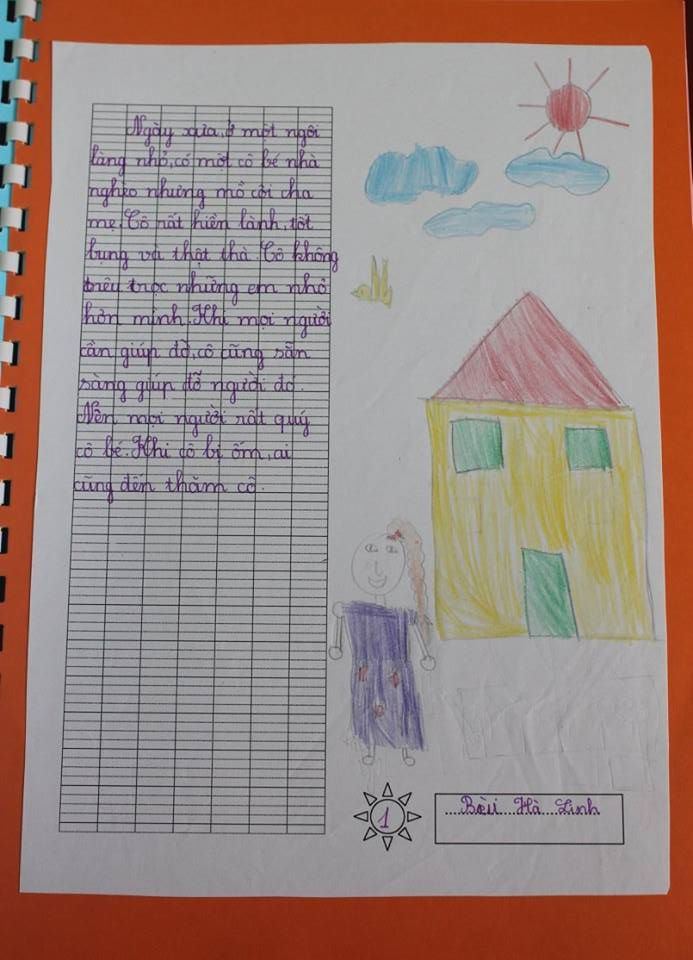 Ngày xưa, ở một ngôi
làng nhỏ, có một cô bé nhà
nghèo nhưng mồ côi cha
mẹ. Cô rất hiền lành, tốt
bụng và thật thà. Cô không
trêu trọc những em nhỏ
hơn mình. Khi mọi người
cần giúp đỡ, cô cũng sẵn
sàng giúp đỡ người đó.
Nên mọi người rất quý
cô bé. Khi cô bị ốm, ai
cũng đến thăm cô.
1
Bùi Hà Linh